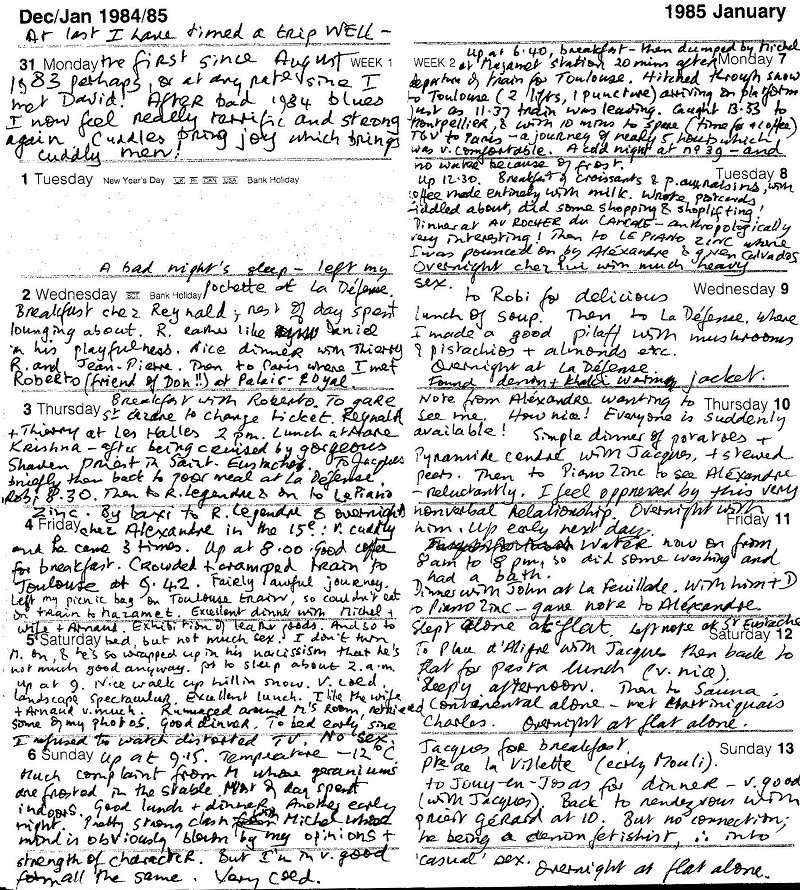 Dec/Jan 1984/85
At last I have timed a trip WELL –
31 Monday the first since August WEEK 1
1983 perhaps, or at any rate since I
met David! After bad 1984 blues
I now feel really terrific and strong
again. Cuddles bring joy which brings
cuddly men!
1 Tuesday New Year's Day UK RI CAN USA Bank Holiday
A bad night's sleep – left my
pochette at La Défense.
2 Wednesday SCT Bank Holiday
Breakfast chez Reynald, rest of day spent
lounging about. R. rather like Daniel
in his playfulness. Nice dinner with Thierry
R. and Jean-Pierre. Then to Paris where I met
Roberto (friend of Don!!) at Palais-Royal.
Breakfast with Roberto. To gare
3 Thursday St Lazare to change ticket. Reynald
+ Thierry at Les Halles 2 pm. Lunch at Hare
Krishna – after being cruised by gorgeous
shaven priest in Saint-Eustache. To Jacques
briefly then back to poor meal at La Défense
8.30. Then to R. Legendre & on to Le Piano
Zinc. By taxi to R. Legendre & overnight
4 Friday chez Alexandre in the 15e: v. cuddly
and he came 3 times. Up at 8.00. Good coffee
for breakfast. Crowded + cramped train to
Toulouse at 5.42. Fairly awful journey.
Left my picnic bag on Toulouse train, so couldn't eat
on train to Mazamet. Excellent dinner with Michel +
wife + Arnaud. Exhibition of leather goods. And so to
5 Saturday bed, but not much sex. I don't turn
M. on, & he's so wrapped up in his narcissism that he's
not much good anyway. Got to sleep about 2. a.m.
Up at 9. Nice walk up hill in snow. V. cold.
Landscape spectacular. Excellent lunch. I like the wife
+ Arnaud v. much. Rummaged around M's Room, retrieved
some of my photos. Good dinner. To bed early, since
I refused to watch distorted TV. No sex.
6 Sunday Up at 9.15. Temperature –12°C.
Much complaint from M whose geraniums
are frosted in the stable. Most of day spent
indoors. Good lunch + dinner. Another early
night. Pretty strong clash Michel whose
mind is obviously blown by my opinions +
strength of character. But I'm in v. good
form all the same. Very cold.
1985 January
Up at 6.40, breakfast – then dumped by Michel
WEEK 2 at Mazamet station 20 mins after Monday 7
departure of train for Toulouse. Hitched through snow
to Toulouse (2 lifts, 1 puncture) arriving on platform
just as 11.37 train was leaving. Caught 13.53 to
Montpellier, & with 10 mins to spare (time for a coffee)
TGV to Paris – a journey of nearly 5 hours which
was v. comfortable. A cold night at no 39 – and
no water because of frost.
Tuesday 8
Up 12.30. Breakfast of croissants & p. aux raisins, with
coffee made entirely with milk. Wrote postcards
fiddled about, did some shopping & shoplifting!
Dinner at AU ROCHER du CANCALE – anthropologically
very interesting! Then to LE PIANO ZINC where
I was pounced on by Alexandre & given Calvados
Overnight chez lui with much heavy
sex.
Wednesday 9
to Robi for delicious
lunch of soup. Then to La Défense, where
I made a good pilaff with mushrooms
& pistachios + almonds etc.
Overnight at La Défense.
Found denim + khaki warm jacket.
Note from Alexandre wanting to
Thursday 10
see me. How nice! Everyone is suddenly
available! Simple dinner of potatoes +
Pyramide cendré with Jacques, + stewed
pears. Then to Piano Zinc to see Alexandre
– reluctantly. I feel oppressed by this very
nonverbal Relationship. Overnight with
him. Up early next day.
Friday 11
Water now on from
8am to 8 pm, so did some washing and
had a bath.
Dinner with John at La Feuillade. With him + D
to Piano Zinc – gave note to Alexandre
Slept alone at flat. Left note at St Eustache
Saturday 12
To Place d'Aligre with Jacques then back to
flat for pasta lunch (v. nice).
Sleepy afternoon. Then to Sauna
Continental alone – met Martiniquais
Charles. Overnight at flat alone.
Jacques for breakfast.
Sunday 13
Pte de la Villette (early Mouli).
to Jouy-en-Josas for dinner – v. good
(with Jacques). Back to rendezvous with
priest Gérard at 10. But no connection;
he being a denim fetishist, ∴ into
'casual' sex. Overnight at flat alone.